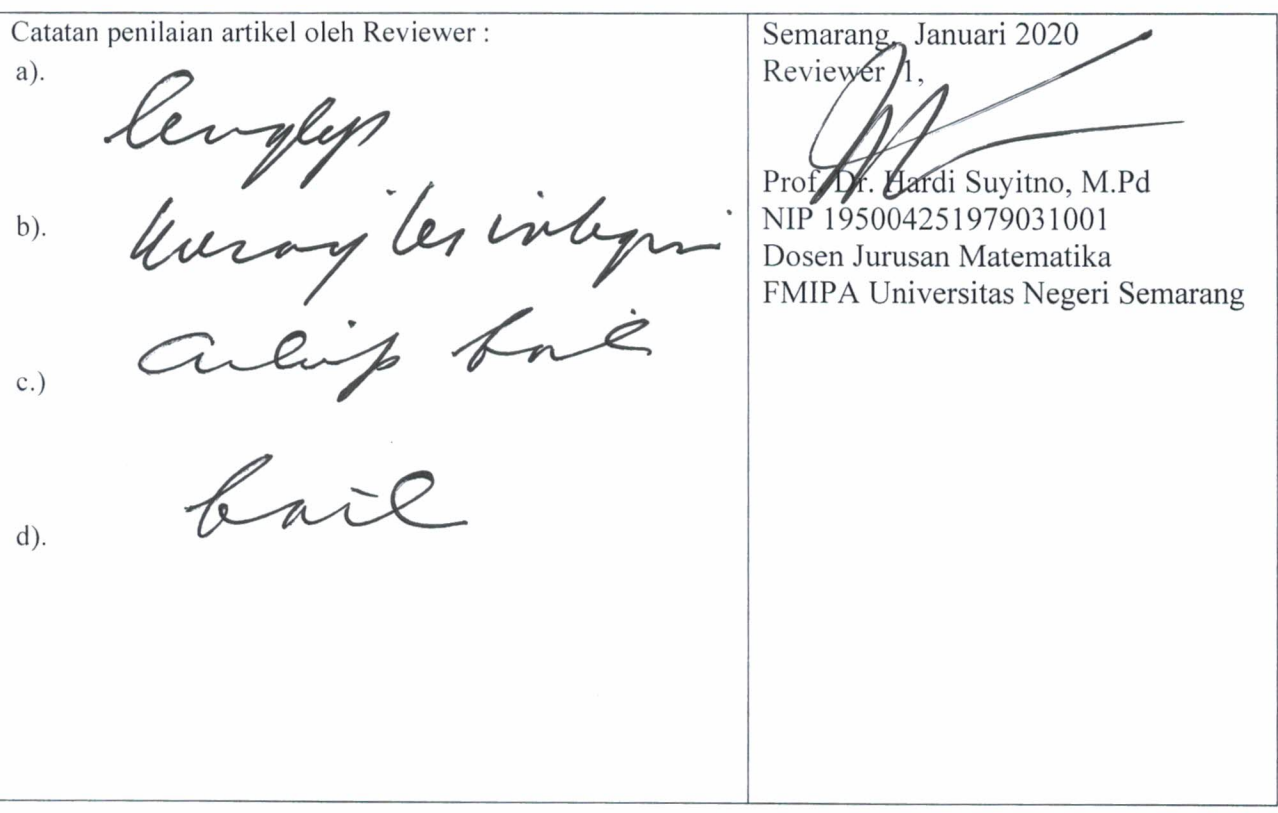 Catatan penilaian artikel oleh Reviewer :
a). lengkap
b). kurang ter integrasi
c.) cukup baik
d). baik
Semarang, Januari 2020
Reviewer 1,
Prof. Dr. Hardi Suyitno, M.Pd
NIP 195004251979031001
Dosen Jurusan Matematika
FMIPA Universitas Negeri Semarang